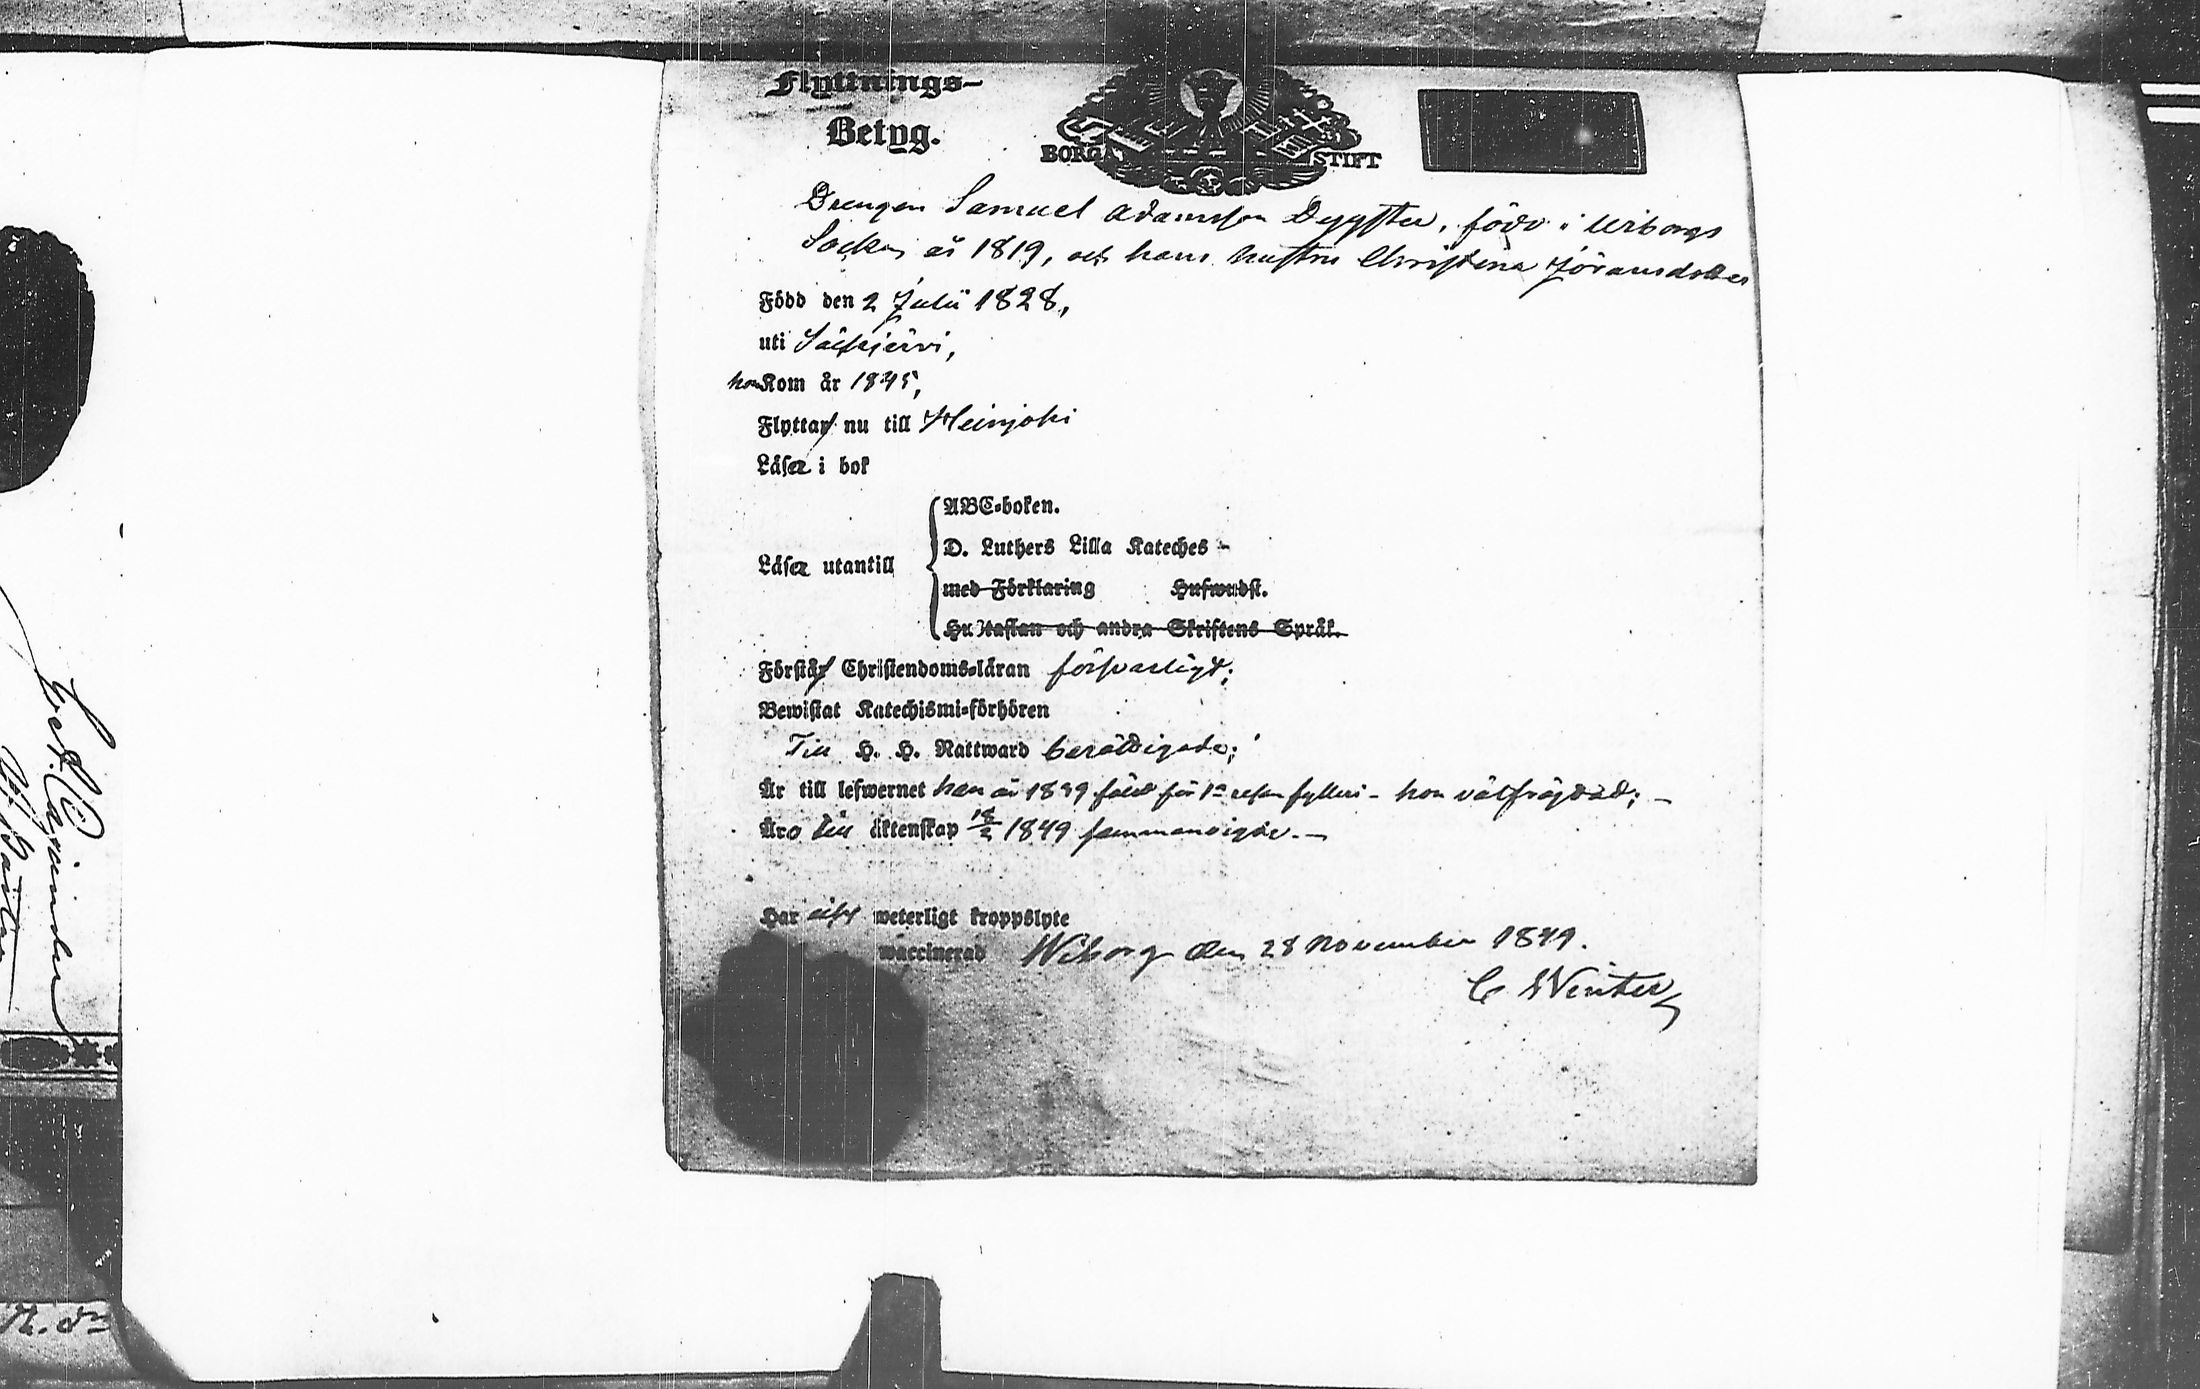 Flyttnings-
Betyg.
BORGÅ STIFT
Drengen Samuel Adamsson Dygster, född i Wiborgs
Socken år 1819, och hans hustru Christina Jöransdotter
Född den 2 Julii 1828,
uti Säckjärvi,
hon Kom år 1845,
Flytta nu till Heinjoki
Läsa i bok
Läsa utantill
ABC-boken.
D. Luthers Lilla Kateches
med Förklaring Hufwudst.
Hustaflan och andra Skriftens Språk.
Förstå Christendoms-läran försvarligt;
Bewistat Katechismi-förhören
Till H. H. Nattward berättigade;
Är till lefwernet han år 1839 fäld för 1a resan fylleri - hon välfrägdad; -
Äro till äktenskap 18/2 1849 sammanvigde. -
Har ej weterligt kroppslyte
waccinerad Wiborg den 28 November 1849.
C Winter